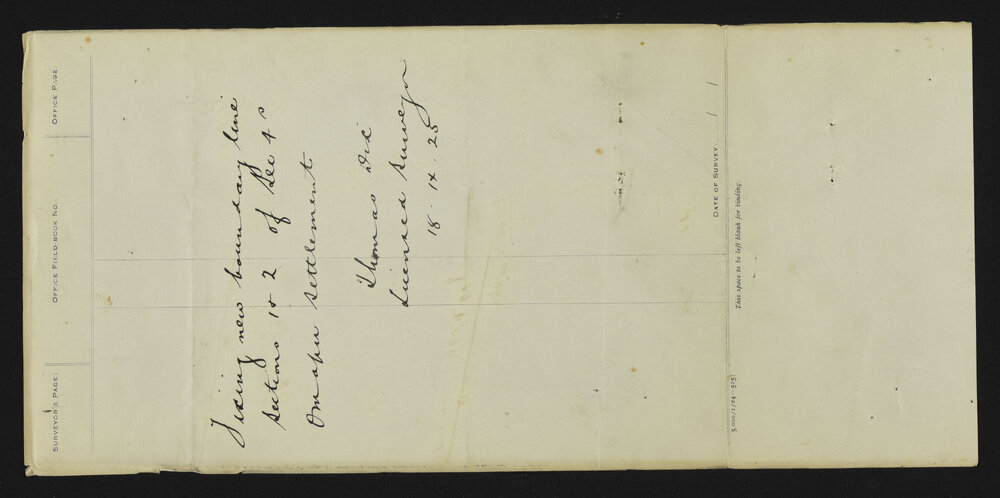 SURVEYOR'S PAGE.
OFFICE FIELD BOOK NO.
OFFICE PAGE
Fixing new boundary line
sections 1 & 2 of Sec 4 s
Omapu settlement
Thomas Dix
Licensed surveyor
18. 12. 25
DATE OF SURVEY / /
This space to be left blank for binding.
5,000/1/24—525]